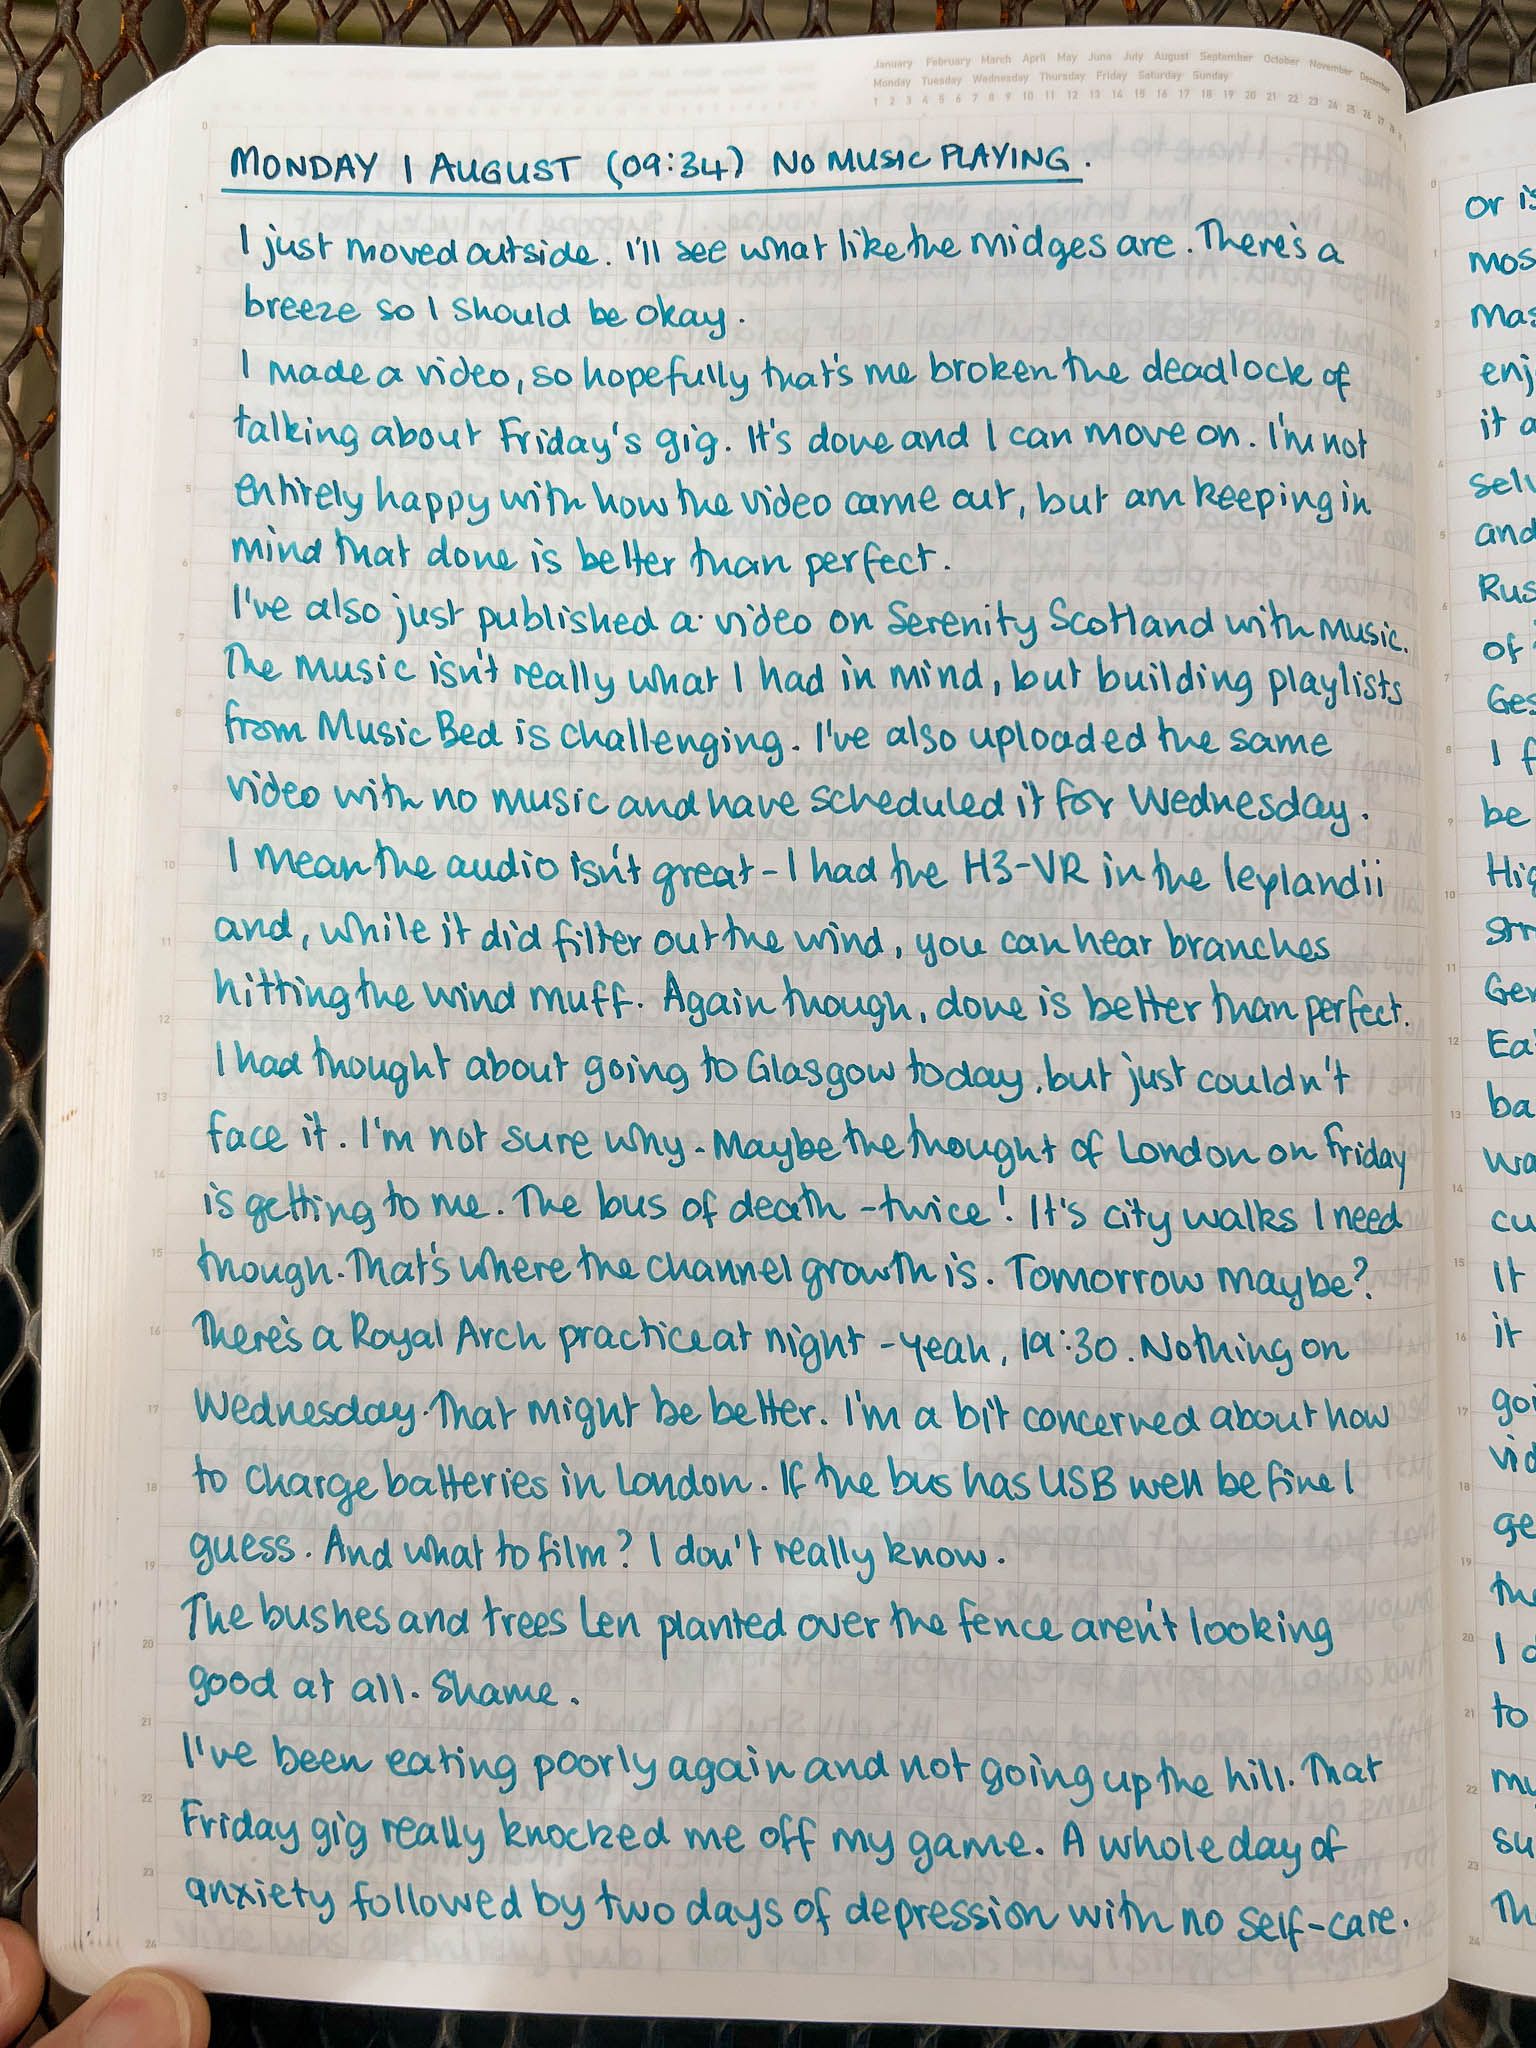 January February March April May June July August September October November December
Monday Tuesday Wednesday Thursday Friday Saturday Sunday
1 2 3 4 5 6 7 8 9 10 11 12 13 14 15 16 17 18 19 20 21 22 23 24 25 26 27 28
MONDAY 1 AUGUST (09:34) NO MUSIC PLAYING.
I just moved outside. I'll see what like the midges are. There's a
breeze so I should be okay.
I made a video, so hopefully that's me broken the deadlock of
talking about Friday's gig. It's done and I can move on. I'm not
entirely happy with how the video came out, but am keeping in
mind that done is better than perfect.
I've also just published a video on Serenity Scotland with music.
The music isn't really what I had in mind, but building playlists
from Music Bed is challenging. I've also uploaded the same
video with no music and have scheduled it for Wednesday.
I mean the audio isn't great - I had the H3-VR in the leylandii
and, while it did filter out the wind, you can hear branches
hitting the wind muff. Again though, done is better than perfect.
I had thought about going to Glasgow today, but just couldn't
face it. I'm not sure why. Maybe the thought of London on Friday
is getting to me. The bus of death - twice! It's city walks I need
though. That's where the channel growth is. Tomorrow maybe?
There's a Royal Arch practice at night - yeah, 19:30. Nothing on
Wednesday. That might be better. I'm a bit concerned about how
to charge batteries in London. If the bus has USB we'll be fine I
guess. And what to film? I don't really know.
The bushes and trees Len planted over the fence aren't looking
good at all. Shame.
I've been eating poorly again and not going up the hill. That
Friday gig really knocked me off my game. A whole day of
anxiety followed by two days of depression with no self-care.